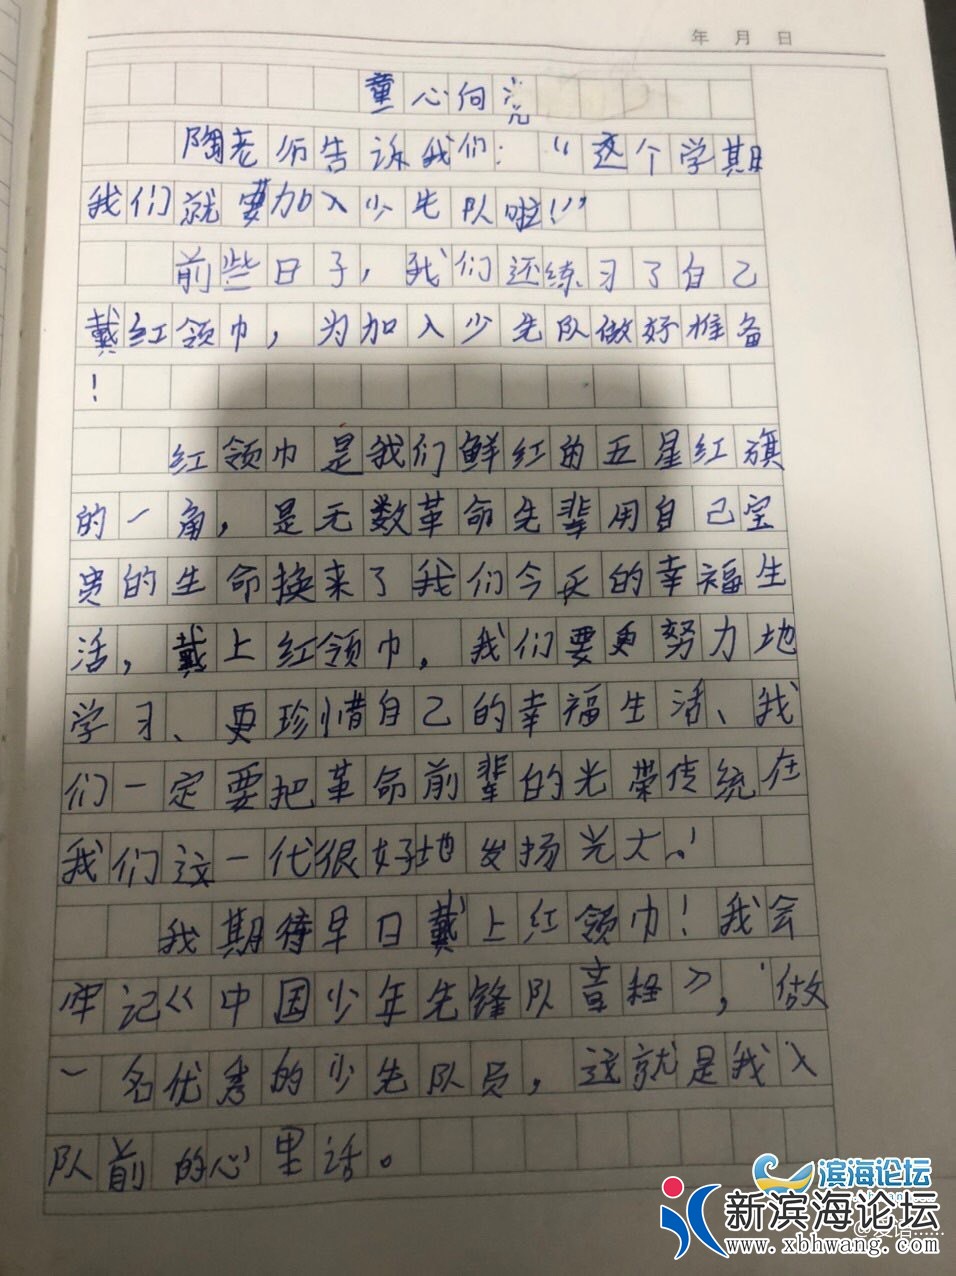 年 月 日
童心向党
陶老师告诉我们：“这个学期
我们就要加入少先队啦！”
前些日子，我们还练习了自己
戴红领巾，为加入少先队做好准备
！
红领巾是我们鲜红的五星红旗
的一角，是无数革命先辈用自己宝
贵的生命换来了我们今天的幸福生
活，戴上红领巾，我们要更努力地
学习、更珍惜自己的幸福生活、我
们一定要把革命前辈的光荣传统在
我们这一代很好地发扬光大。！
我期待早日戴上红领巾！我会
牢记《中国少年先锋队章程》，做
一名优秀的少先队员，这就是我入
队前的心里话。
滨海论坛
新滨海论坛
www.xbhwang.com